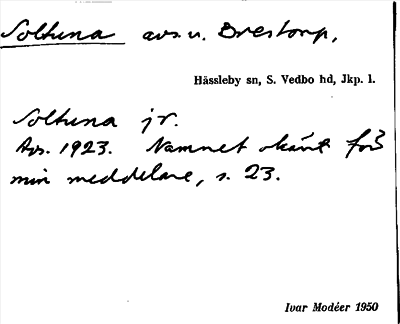 Soltuna avs. u. Brestorp,
Hässleby sn, S. Vedbo hd, Jkp. l.
Soltuna jr.
Avs. 1923. Namnet okänt för
min meddelare, s. 23.
Ivar Modéer 1950